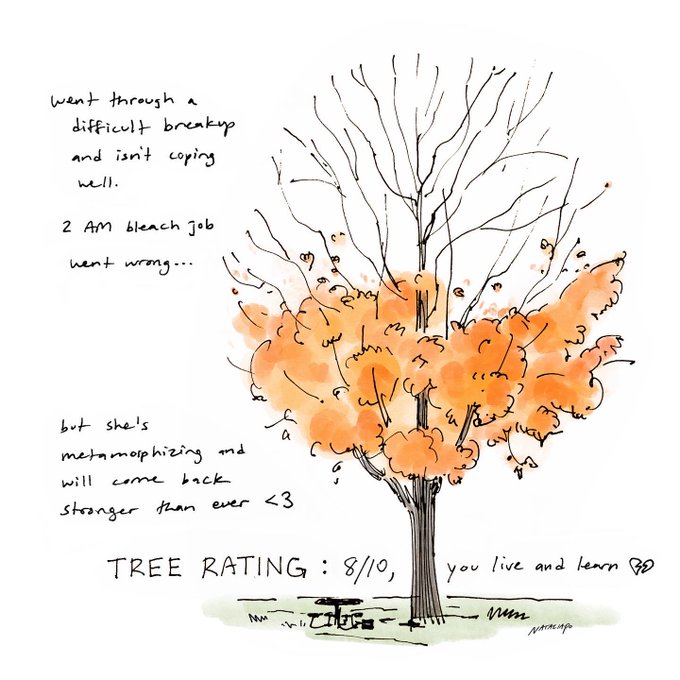 went through a
difficult breakup
and isn't coping
well.
2 AM bleach job
went wrong...
but she's
metamorphizing and
will come back
stronger than ever <3
TREE RATING: 8/10, you live and learn